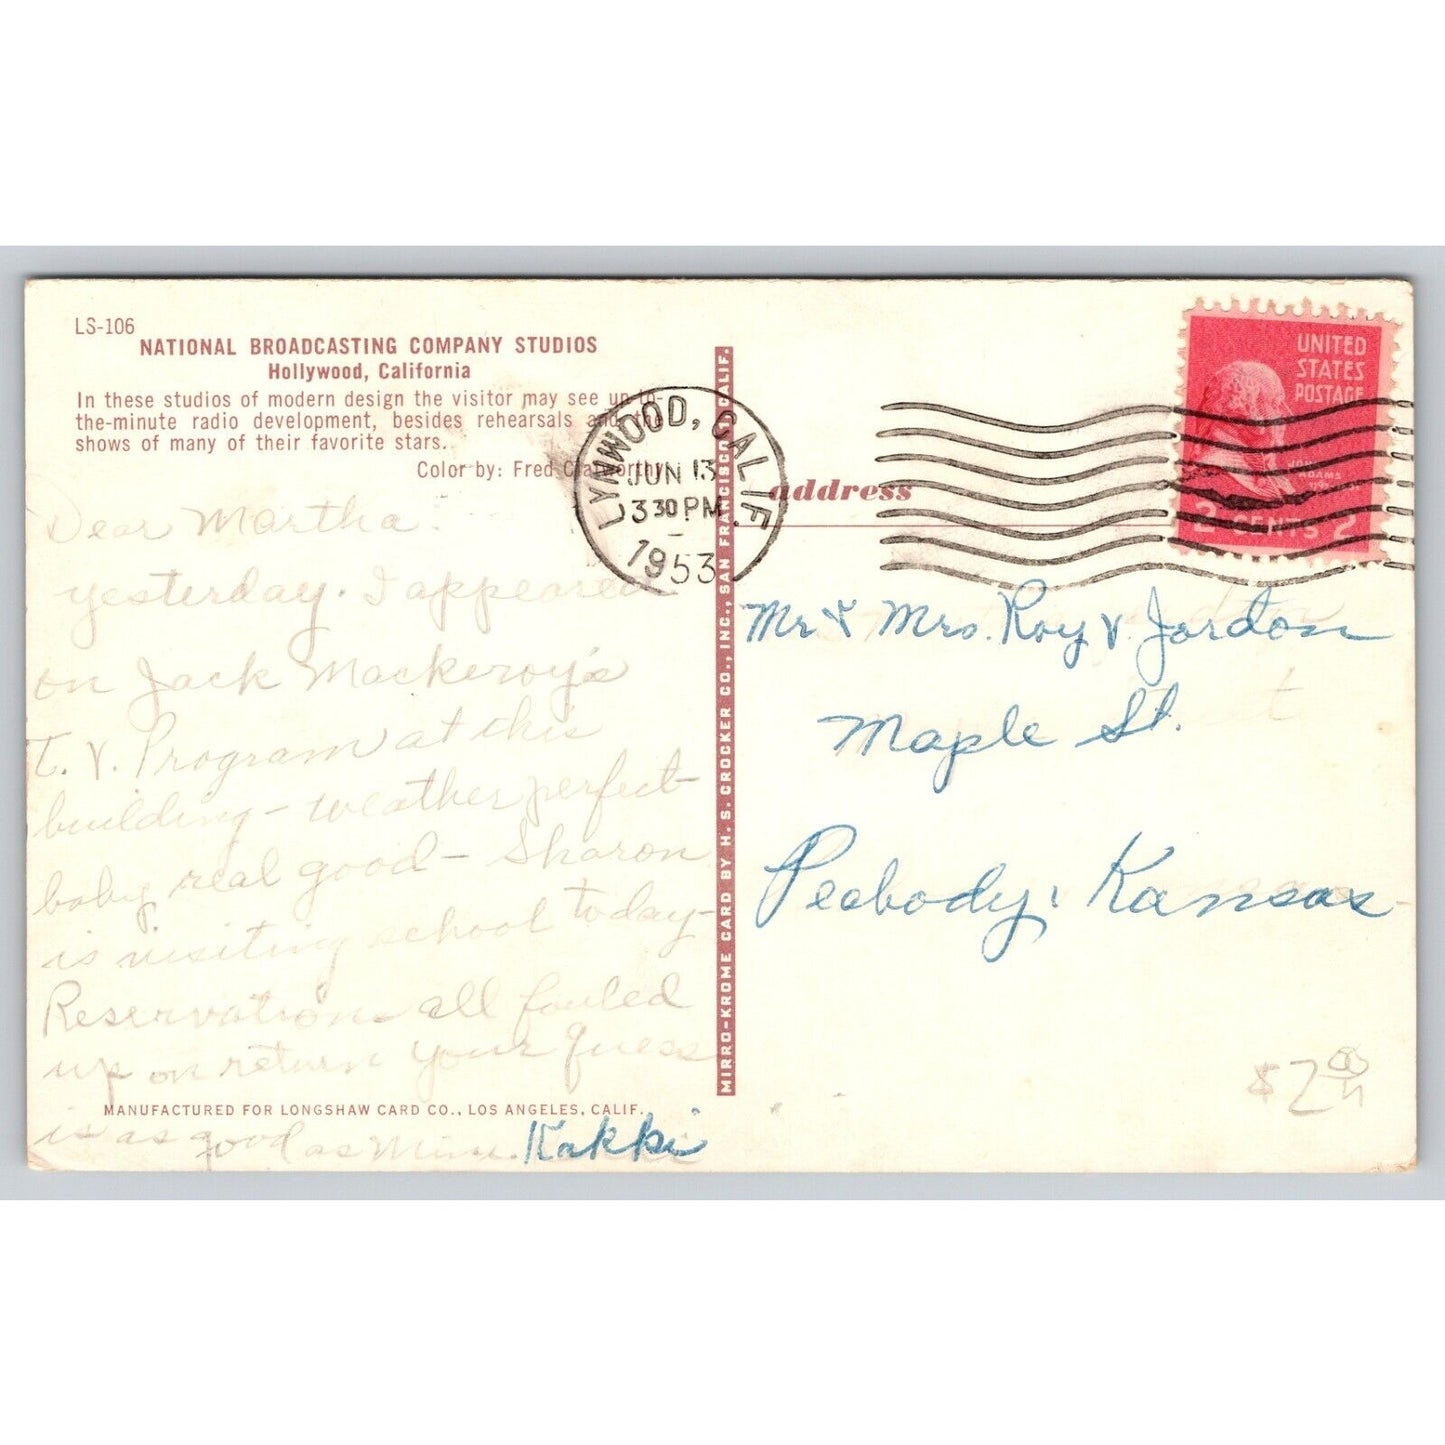 LS-106
NATIONAL BROADCASTING COMPANY STUDIOS
Hollywood, California
In these studios of modern design the visitor may see up-to-
the-minute radio development, besides rehearsals and the
shows of many of their favorite stars.
Color by: Fred Clatworthy
Dear Martha:
yesterday. I appeared
on Jack Mackeroy's
T. V. Program at this
building - weather perfect -
baby real good - Sharon
is visiting school today -
Reservation all fouled
up on return your guess
is as good as mine. Kakki
MANUFACTURED FOR LONGSHAW CARD CO., LOS ANGELES, CALIF.
MIRRO-KROME CARD BY H. S. CROCKER CO., INC., SAN FRANCISCO 1, CALIF.
LYNWOOD, CALIF.
JUN 13
3 30 PM
1953
UNITED
STATES
POSTAGE
JOHN
ADAMS
2 CENTS 2
address
Mr & Mrs. Roy V. Jordon
Maple St.
Peabody, Kansas
$2.00